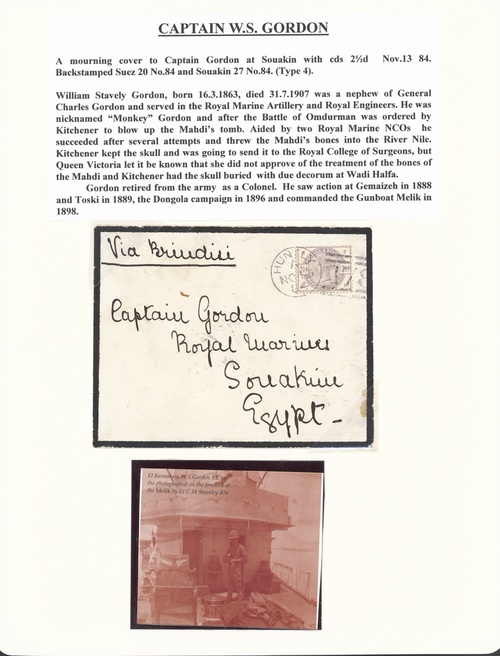 CAPTAIN W.S. GORDON
A mourning cover to Captain Gordon at Souakin with cds 2½d Nov.13 84.
Backstamped Suez 20 No.84 and Souakin 27 No.84. (Type 4).
William Stavely Gordon, born 16.3.1863, died 31.7.1907 was a nephew of General
Charles Gordon and served in the Royal Marine Artillery and Royal Engineers. He was
nicknamed “Monkey” Gordon and after the Battle of Omdurman was ordered by
Kitchener to blow up the Mahdi’s tomb. Aided by two Royal Marine NCOs he
succeeded after several attempts and threw the Mahdi’s bones into the River Nile.
Kitchener kept the skull and was going to send it to the Royal College of Surgeons, but
Queen Victoria let it be known that she did not approve of the treatment of the bones of
the Mahdi and Kitchener had the skull buried with due decorum at Wadi Halfa.
Gordon retired from the army as a Colonel. He saw action at Gemaizeh in 1888
and Toski in 1889, the Dongola campaign in 1896 and commanded the Gunboat Melik in
1898.
Via Brindisi
HUN
NO
Captain Gordon
Royal Marines
Souakim
Egypt-
W S Gordon RE
the photographed on the
the Melik by Lt C M Staveley RN